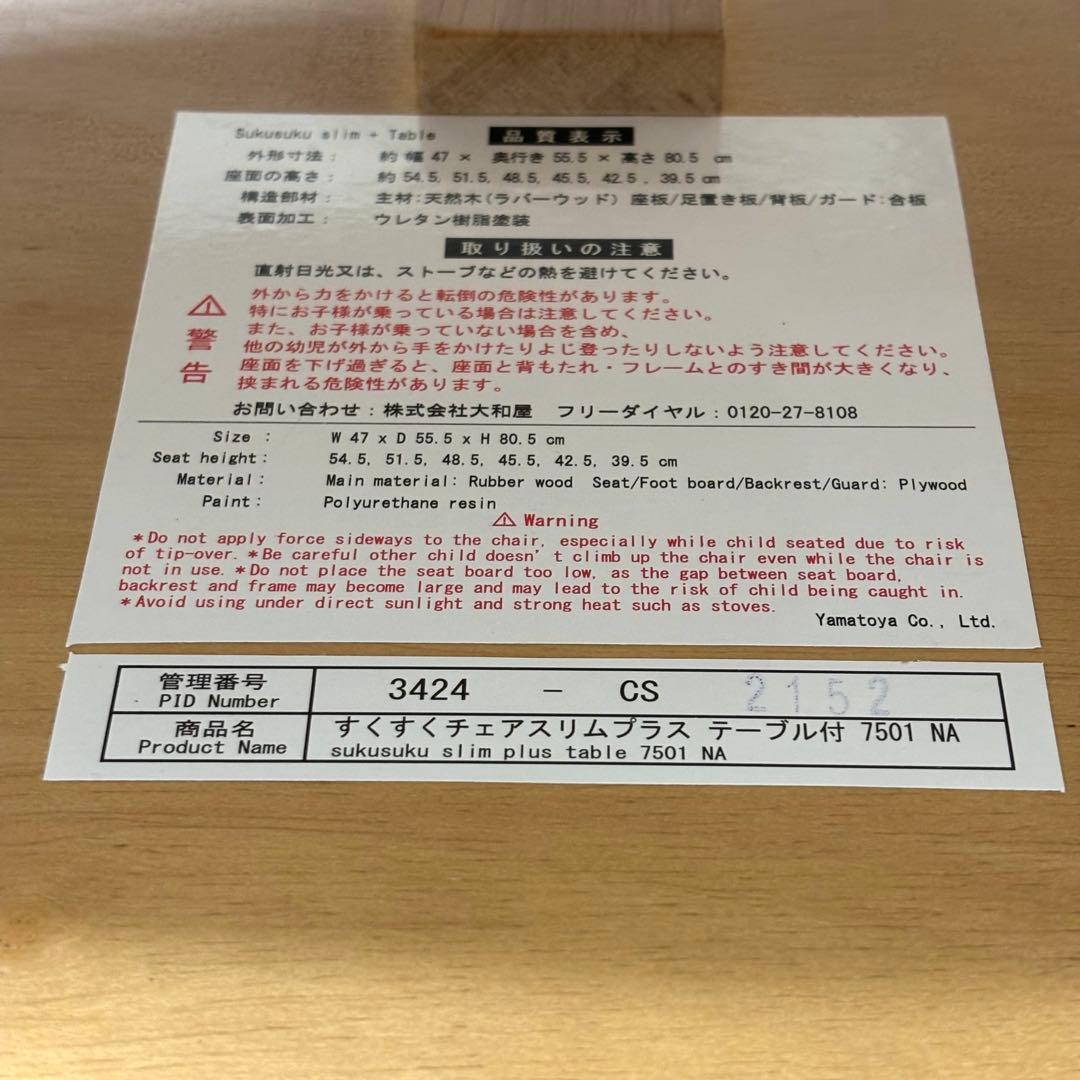 Sukusuku slim + Table 品質表示
外形寸法: 約 幅 47 × 奥行き 55.5 × 高さ 80.5 cm
座面の高さ: 約 54.5, 51.5, 48.5, 45.5, 42.5 , 39.5 cm
構造部材: 主材:天然木(ラバーウッド) 座板/足置き板/背板/ガード:合板
表面加工: ウレタン樹脂塗装
取り扱いの注意
直射日光又は、ストーブなどの熱を避けてください。
⚠警告
外から力をかけると転倒の危険性があります。
特にお子様が乗っている場合は注意してください。
また、お子様が乗っていない場合を含め、
他の幼児が外から手をかけたりよじ登ったりしないよう注意してください。
座面を下げ過ぎると、座面と背もたれ・フレームとのすき間が大きくなり、
挟まれる危険性があります。
お問い合わせ:株式会社大和屋 フリーダイヤル:0120-27-8108
Size : W 47 x D 55.5 x H 80.5 cm
Seat height: 54.5, 51.5, 48.5, 45.5, 42.5, 39.5 cm
Material: Main material: Rubber wood Seat/Foot board/Backrest/Guard: Plywood
Paint: Polyurethane resin
⚠ Warning
*Do not apply force sideways to the chair, especially while child seated due to risk
of tip-over. *Be careful other child doesn't climb up the chair even while the chair is
not in use. *Do not place the seat board too low, as the gap between seat board,
backrest and frame may become large and may lead to the risk of child being caught in.
*Avoid using under direct sunlight and strong heat such as stoves.
Yamatoya Co., Ltd.
管理番号
PID Number
3424 - CS 2152
商品名
Product Name
すくすくチェアスリムプラス テーブル付 7501 NA
sukusuku slim plus table 7501 NA